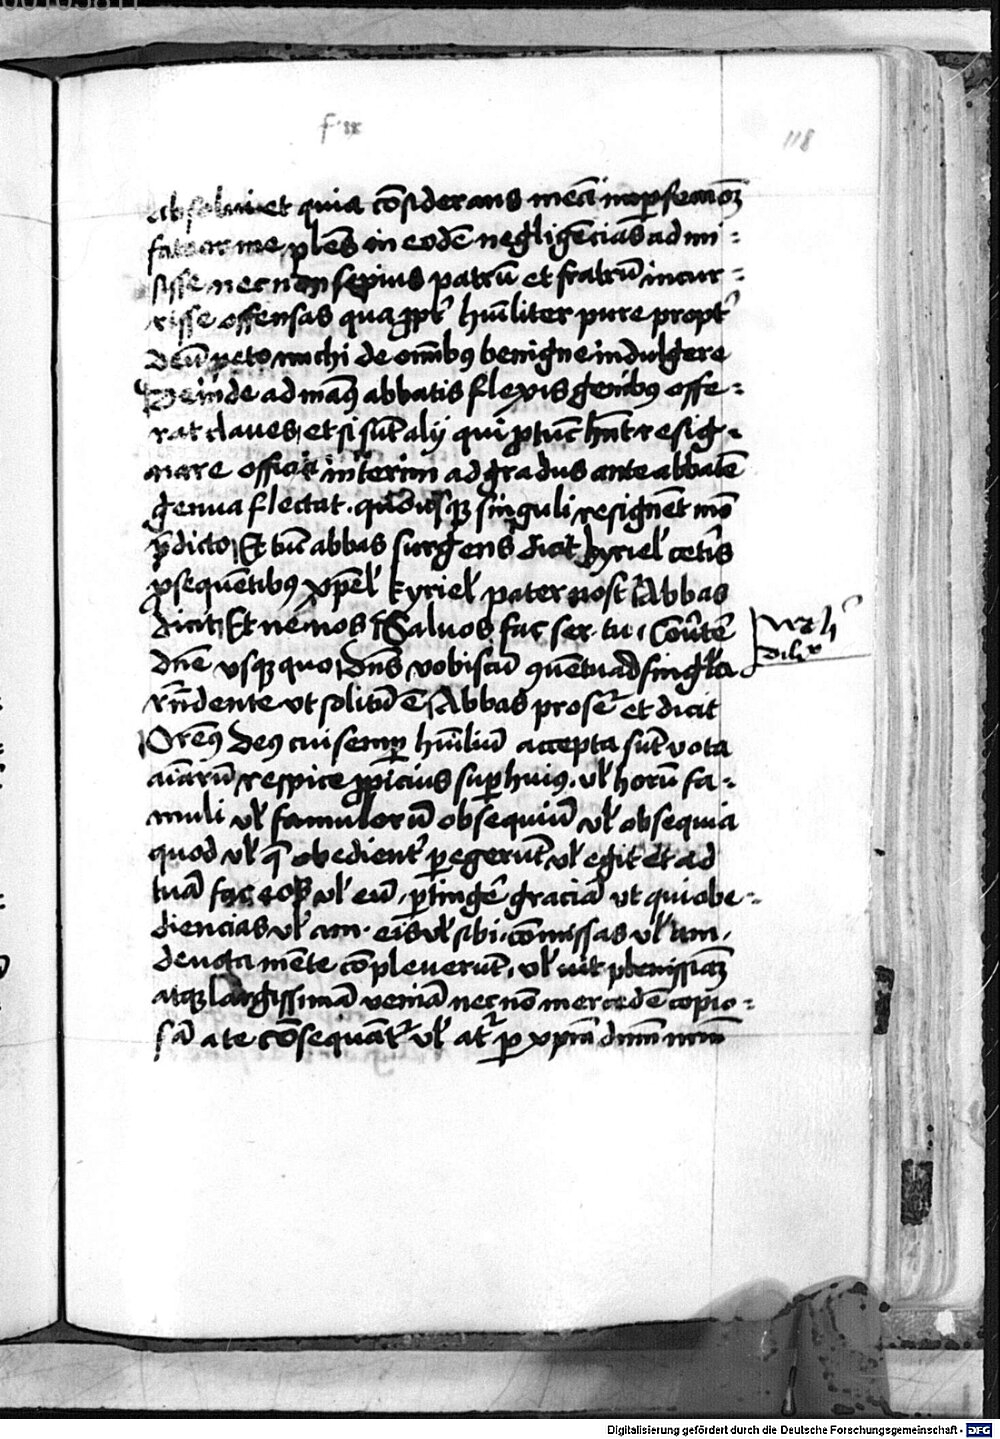 absoluiet quia cōsiderans meā inp̄fectionꝫ
fateor me plēs in eodē negligēcias admi-
sisse nec non sepius patrū et fratrū incur-
risse offensas qua ꝓpt' hūiliter pure propt'
deū peto michi de omībꝰ benigne indulgere
Deinde ad manꝰ abbatis flexis genibꝰ offe-
rat claues, et si sūt alij qui ꝓtūc hn̄t resig-
nare officia interim ad gradus ante abbatē
genua flectat. quousqꝫ singuli resignēt mō
p̄dicto, Et tūc abbas surgens dicit kyriel' cet'is
ꝓsequētibꝰ xp̄el' kyriel' pater nost' Abbas
dicit, Et ne nos Saluos fac ser. tu. Cōu'te
dn̄e vsqꝫ quo, Dn̄s vobiscū
rn̄dente vt solitū ē, Abbas prosēr et dicit
Orēꝰ Deꝰ cui semꝑ hūiliū accepta sūt vota
aīarū respice ꝓpicius suꝑ huiꝰ. vl' horū fa-
muli vl' famulorū obsequiū vl' obsequia
quod vl' q̄ obedient' ꝑegerūt vl' egit et ad
tuā fac eos vl' eū. ꝑtingēr graciā vt qui obe-
diencias vl' am. eis vl' sibi. cōmissas vl' am.
deuota mēte cōpleuerūt. vl' uit plenissiaꝫ
atqꝫ largissimā veniā nec nō mercedē copio-
sā a te cōsequāt' vl' at' ꝑ xp̄m dn̄m nr̄m
118
00105811
Digitalisierung gefördert durch die Deutsche Forschungsgemeinschaft - DFG